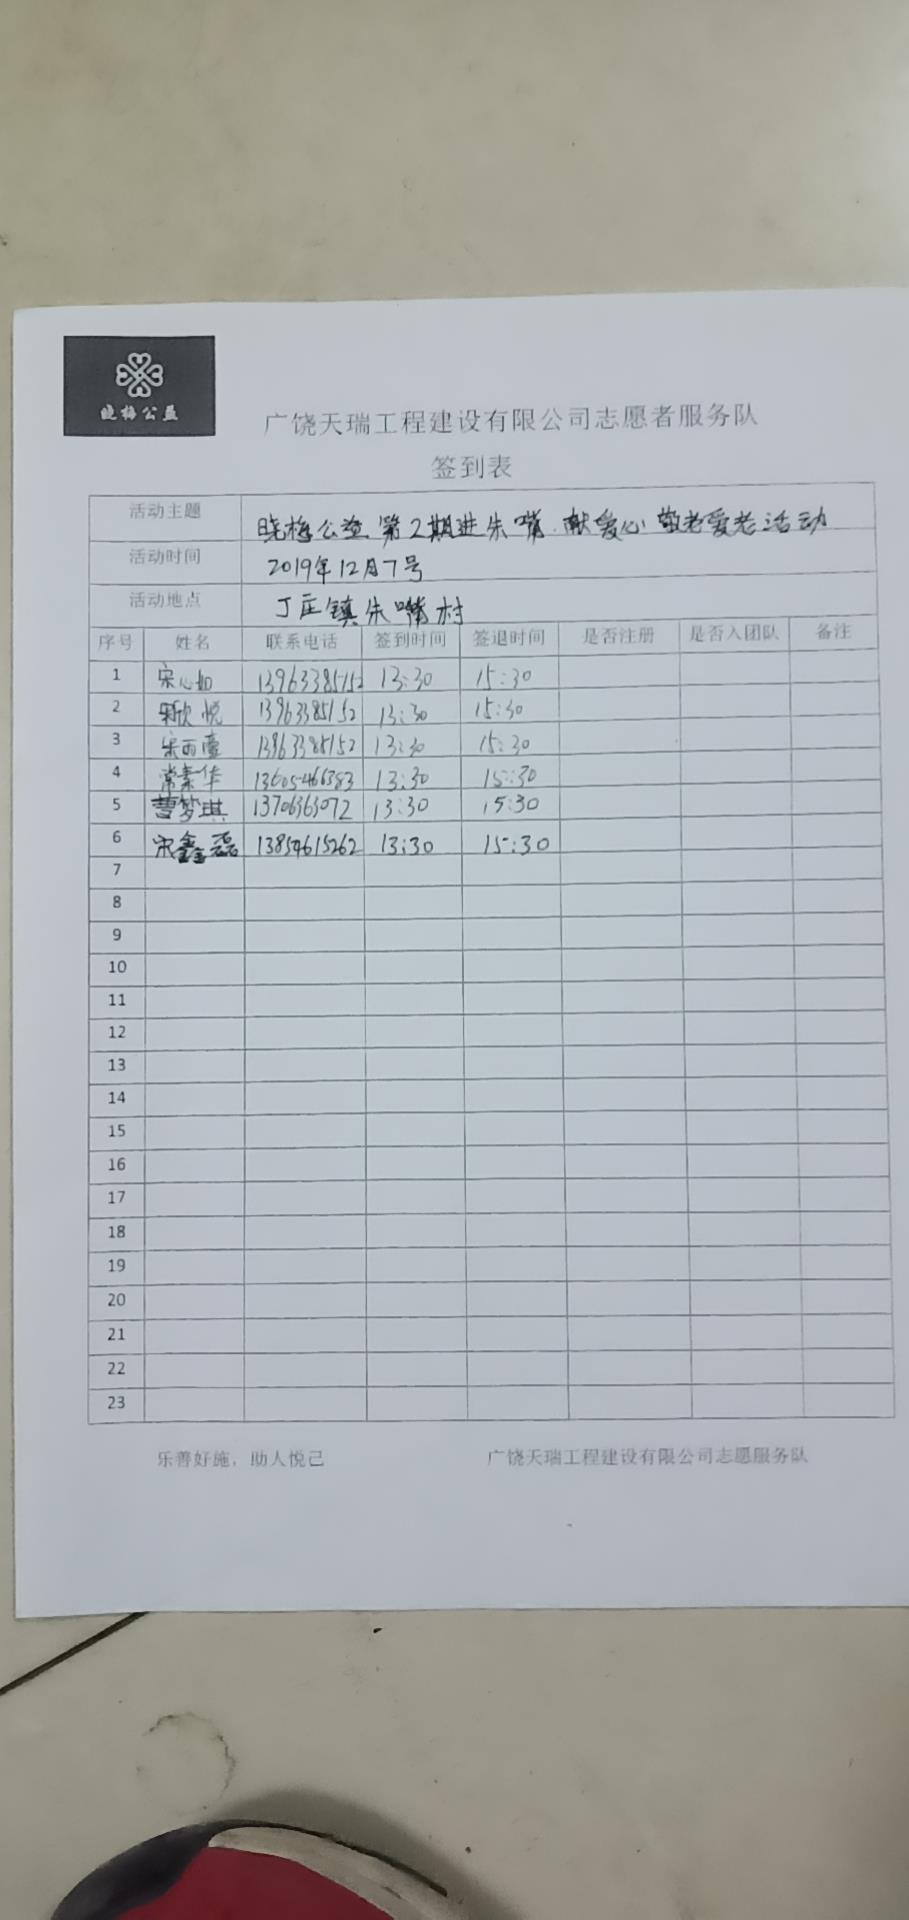 晓梅公益
广饶天瑞工程建设有限公司志愿者服务队
签到表
活动主题 晓梅公益第2期进朱嘴.献爱心敬老爱老活动
活动时间 2019年12月7号
活动地点 丁庄镇朱嘴村
序号 姓名 联系电话 签到时间 签退时间 是否注册 是否入团队 备注
1 宋心如 13963385152 13:30 15:30
2 13963385152 13:30 15:30
3 13963385152 13:30 15:30
4 常素华 13605466383 13:30 15:30
5 曹梦琪 13706363072 13:30 15:30
6 宋鑫磊 13854615262 13:30 15:30
7
8
9
10
11
12
13
14
15
16
17
18
19
20
21
22
23
乐善好施，助人悦己 广饶天瑞工程建设有限公司志愿服务队